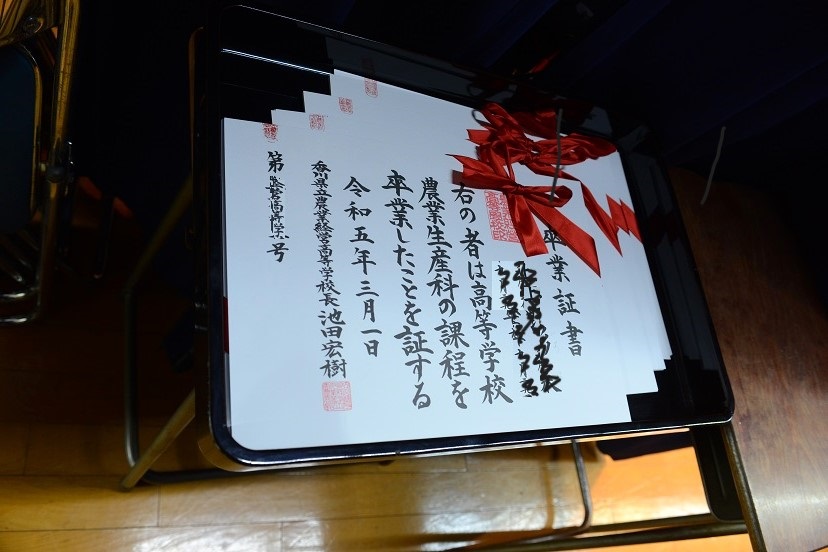 卒業証書
右の者は高等学校
農業生産科の課程を
卒業したことを証する
令和五年三月一日
県立農業経営高等学校長 池田宏樹
第
号